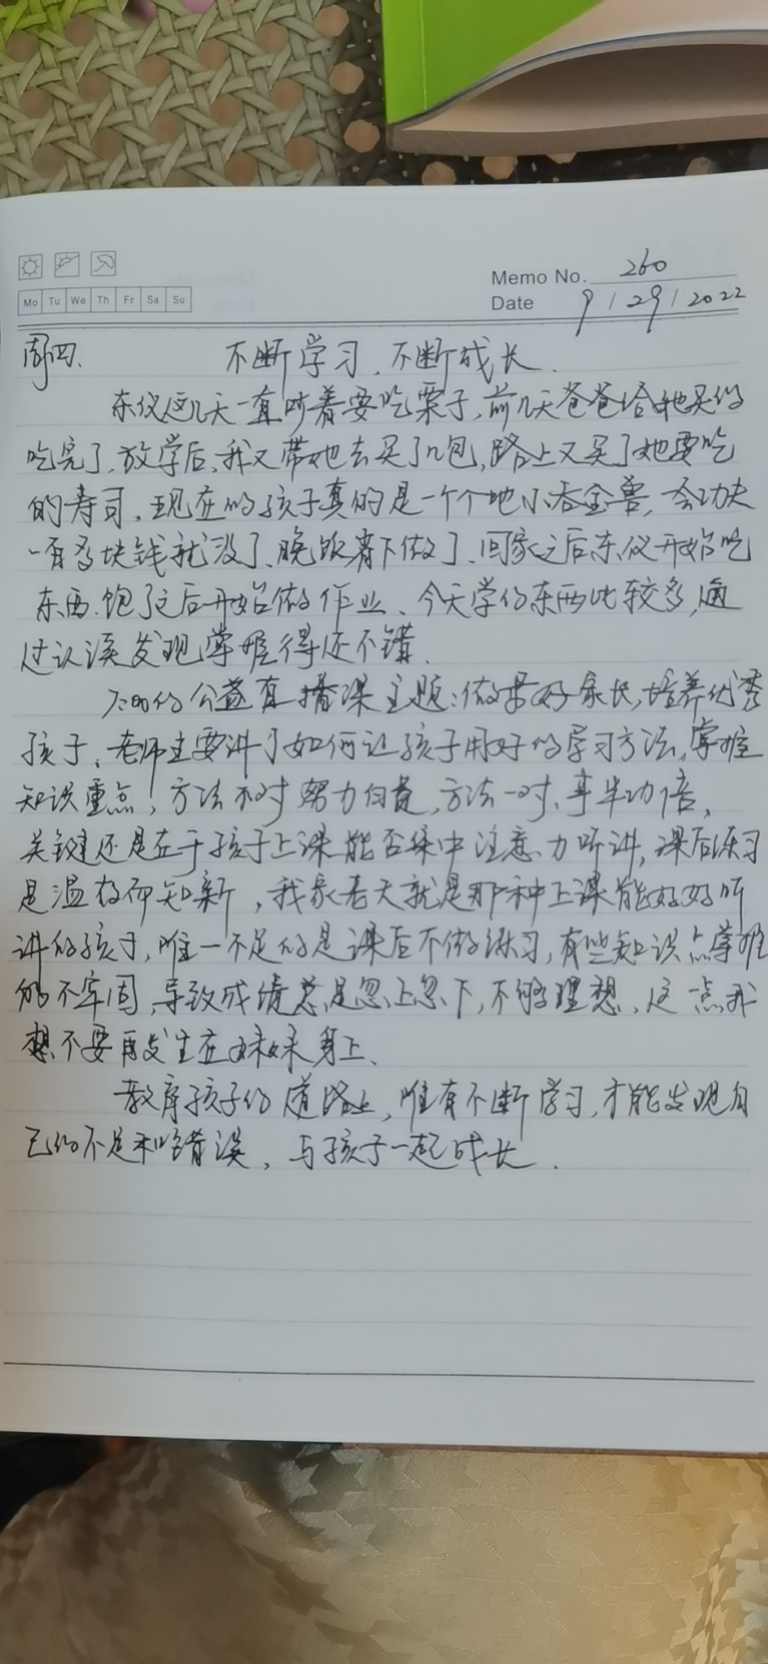 Memo No. 260
Mo Tu We Th Fr Sa Su
Date 9 / 29 / 2022
周四. 不断学习,不断成长.
东仪这几天一直吵着要吃栗子,前几天爸爸给她买的
吃完了,放学后,我又带她去买了几包,路上又买了她要吃
的寿司,现在的孩子真的是一个个地小吞金兽,一会功夫
一百多块钱就没了、晚饭省下做了、回家之后东仪开始吃
东西.饱了之后开始做作业、今天学的东西比较多,通
过认读发现掌握得还不错.
7:00的公益直播课主题:做最好家长,培养优秀
孩子、老师主要讲了如何让孩子用好的学习方法,掌握
知识重点!方法不对努力白费,方法一对、事半功倍,
关键还是在于孩子上课能否集中注意力听讲,课后练习
是温故而知新,我家老大就是那种上课能好好听
讲的孩子,唯一不足的是课后不做练习,有些知识点掌握
的不牢固,导致成绩总是忽上忽下,不够理想,这一点我
想不要再发生在妹妹身上、
教育孩子的道路上,唯有不断学习,才能发现自
己的不足和错误,与孩子一起成长.